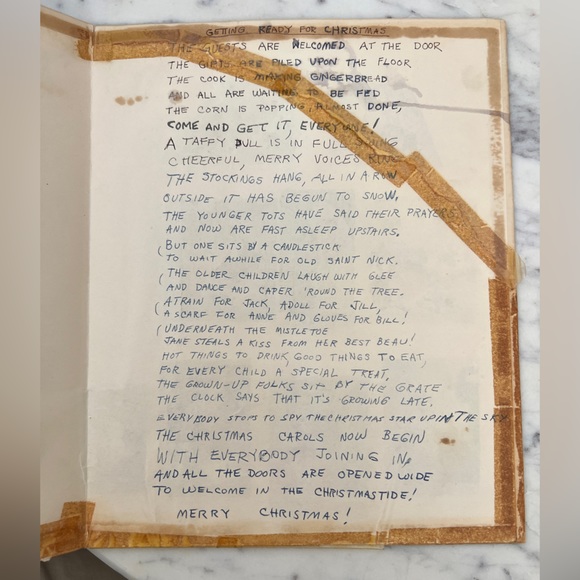 GETTING READY FOR CHRISTMAS
THE GUESTS ARE WELCOMED AT THE DOOR
THE GIFTS ARE PILED UPON THE FLOOR
THE COOK IS MAKING GINGERBREAD
AND ALL ARE WAITING TO BE FED
THE CORN IS POPPING, ALMOST DONE,
COME AND GET IT, EVERYONE!
A TAFFY PULL IS IN FULL SWING
CHEERFUL, MERRY VOICES RING
THE STOCKINGS HANG, ALL IN A ROW
OUTSIDE IT HAS BEGUN TO SNOW.
THE YOUNGER TOTS HAVE SAID THEIR PRAYERS
AND NOW ARE FAST ASLEEP UPSTAIRS.
(BUT ONE SITS BY A CANDLESTICK
TO WAIT AWHILE FOR OLD SAINT NICK.
(THE OLDER CHILDREN LAUGH WITH GLEE
AND DANCE AND CAPER 'ROUND THE TREE.
(A TRAIN FOR JACK, A DOLL FOR JILL,
A SCARF FOR ANNE AND GLOVES FOR BILL!
(UNDERNEATH THE MISTLETOE
JANE STEALS A KISS FROM HER BEST BEAU!
HOT THINGS TO DRINK, GOOD THINGS TO EAT,
FOR EVERY CHILD A SPECIAL TREAT.
THE GROWN-UP FOLKS SIT BY THE GRATE
THE CLOCK SAYS THAT IT'S GROWING LATE.
EVERYBODY STOPS TO SPY THE CHRISTMAS STAR UP IN THE SKY
THE CHRISTMAS CAROLS NOW BEGIN
WITH EVERYBODY JOINING IN,
AND ALL THE DOORS ARE OPENED WIDE
TO WELCOME IN THE CHRISTMASTIDE!
MERRY CHRISTMAS!